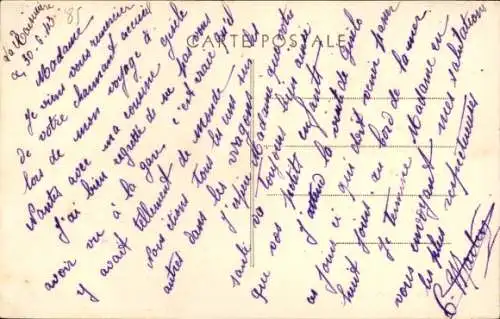 CARTE POSTALE
85
La
le 30-8-43
Madame
Je viens vous remercier
de votre charmant accueil
lors de mon voyage à
Nantes avec ma cousine Gisèle
J'ai bien regretté de ne pas vous
avoir vu à la gare c'est vrai qu'il
y avait tellement de monde
Nous étions tous les uns sur
autres dans les wagons
J'espère Madame que votre
santé va toujours bien ainsi
que vos petits enfants
J'attend la visite de Gisèle
ces jours ci qui doit venir passer
huit jours au bord de la mer
Je termine Madame en
vous envoyant mes salutations
les plus respectueuses